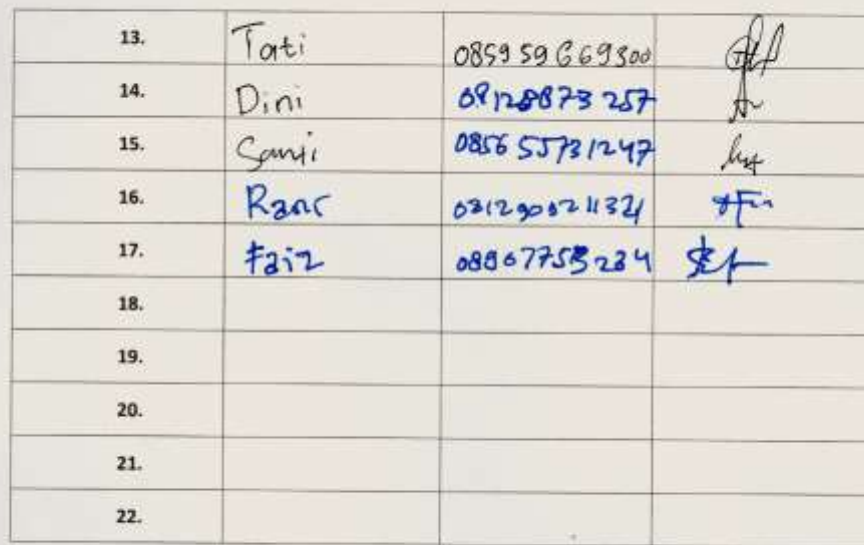 13. Tati 085959669300
14. Dini 08128873257
15. Santi 085655731247
16. Rani 081290021132
17. Faiz 08967755234
18.
19.
20.
21.
22.